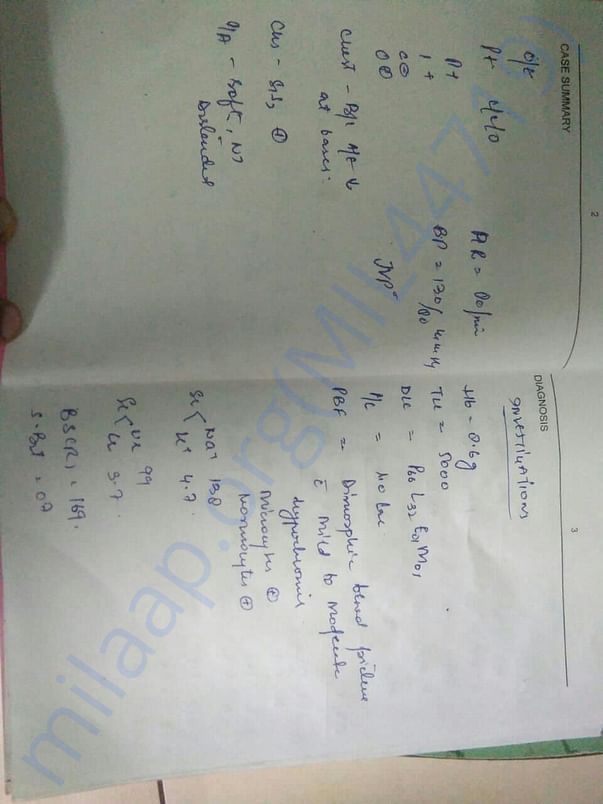 2
CASE SUMMARY
O/E
Pt c/c/o
P+
I +
C⊖
O⊕
HR = 90/min
BP = 130/80 mmHg
JVP
Chest - B/L A/E ↓
at bases.
CVS - S1S2 ⊕
P/A - Soft, N?
Distended
3
DIAGNOSIS
INVESTIGATIONS
Hb - 8.6g
TLC = 5000
DLC = P66 L32 E01 M01
P/C = 1.10 lac
PBF = Dimorphic blood picture
c̄ mild to moderate
hypochromia
microcytes ⊕
Normocytes ⊕
Se Na+ 138
K+ 4.7
Se Ur 99
Cr 3.7
BS(R) = 169.
S.Bil = 0.7
milaap.org(MIL4474